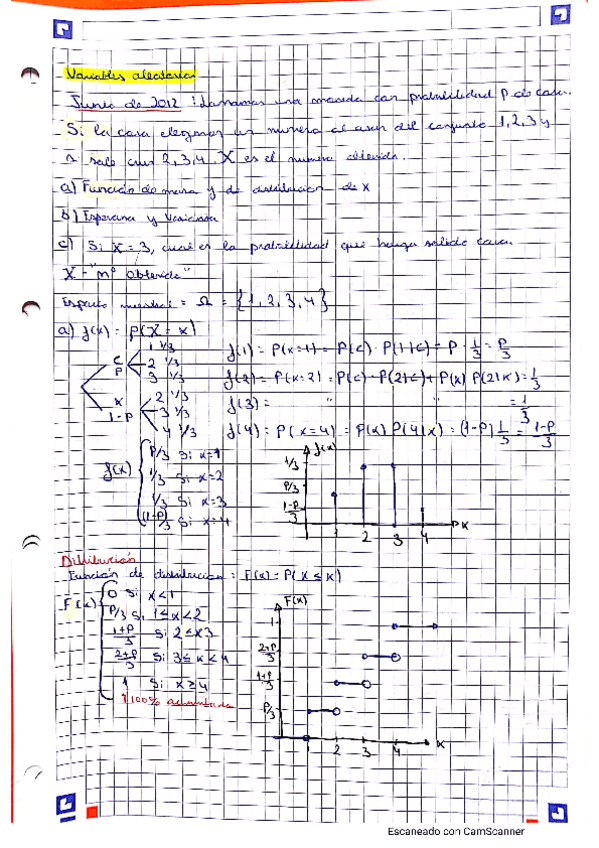 Variables aleatorias
Junio de 2012: Lanzamos una moneda con probabilidad P de cara.
Si la cara elegimos un numero al azar del conjunto 1,2,3 y
si sale cruz 2,3,4. X es el numero obtenido.
a) Función de masa y de distribución de x
b) Esperanza y Varianza
c) Si X = 3, cual es la probabilidad que haya salido cara.
X = "nº obtenido"
Espacio muestral = Ω = {1, 2, 3, 4}
a) f(x) = P(X = x)
C P 1 1/3
2 1/3
3 1/3
X 1-P 2 1/3
3 1/3
4 1/3
f(1) = P(x=1) = P(C) · P(1|C) = P · 1/3 = P/3
f(2) = P(x=2) = P(C) · P(2|C) + P(X) P(2|X) = 1/3
f(3) = " " = 1/3
f(4) = P(x=4) = P(X) P(4|X) = (1-P) 1/3 = 1-P/3
f(x) { P/3 Si x=1
1/3 Si x=2
1/3 Si x=3
(1-P)/3 Si x=4
f(x)
1/3
P/3
1-P/3
1 2 3 4 x
Distribución
Función de distribución: F(x) = P(X ≤ x)
F(x) { 0 Si x<1
P/3 Si 1≤x<2
1+P/3 Si 2≤x3
2+P/3 Si 3≤x<4
1 Si x≥4
↑ 100% acumulada
F(x)
1
2+P/3
1+P/3
P/3
1 2 3 4 x
Escaneado con CamScanner